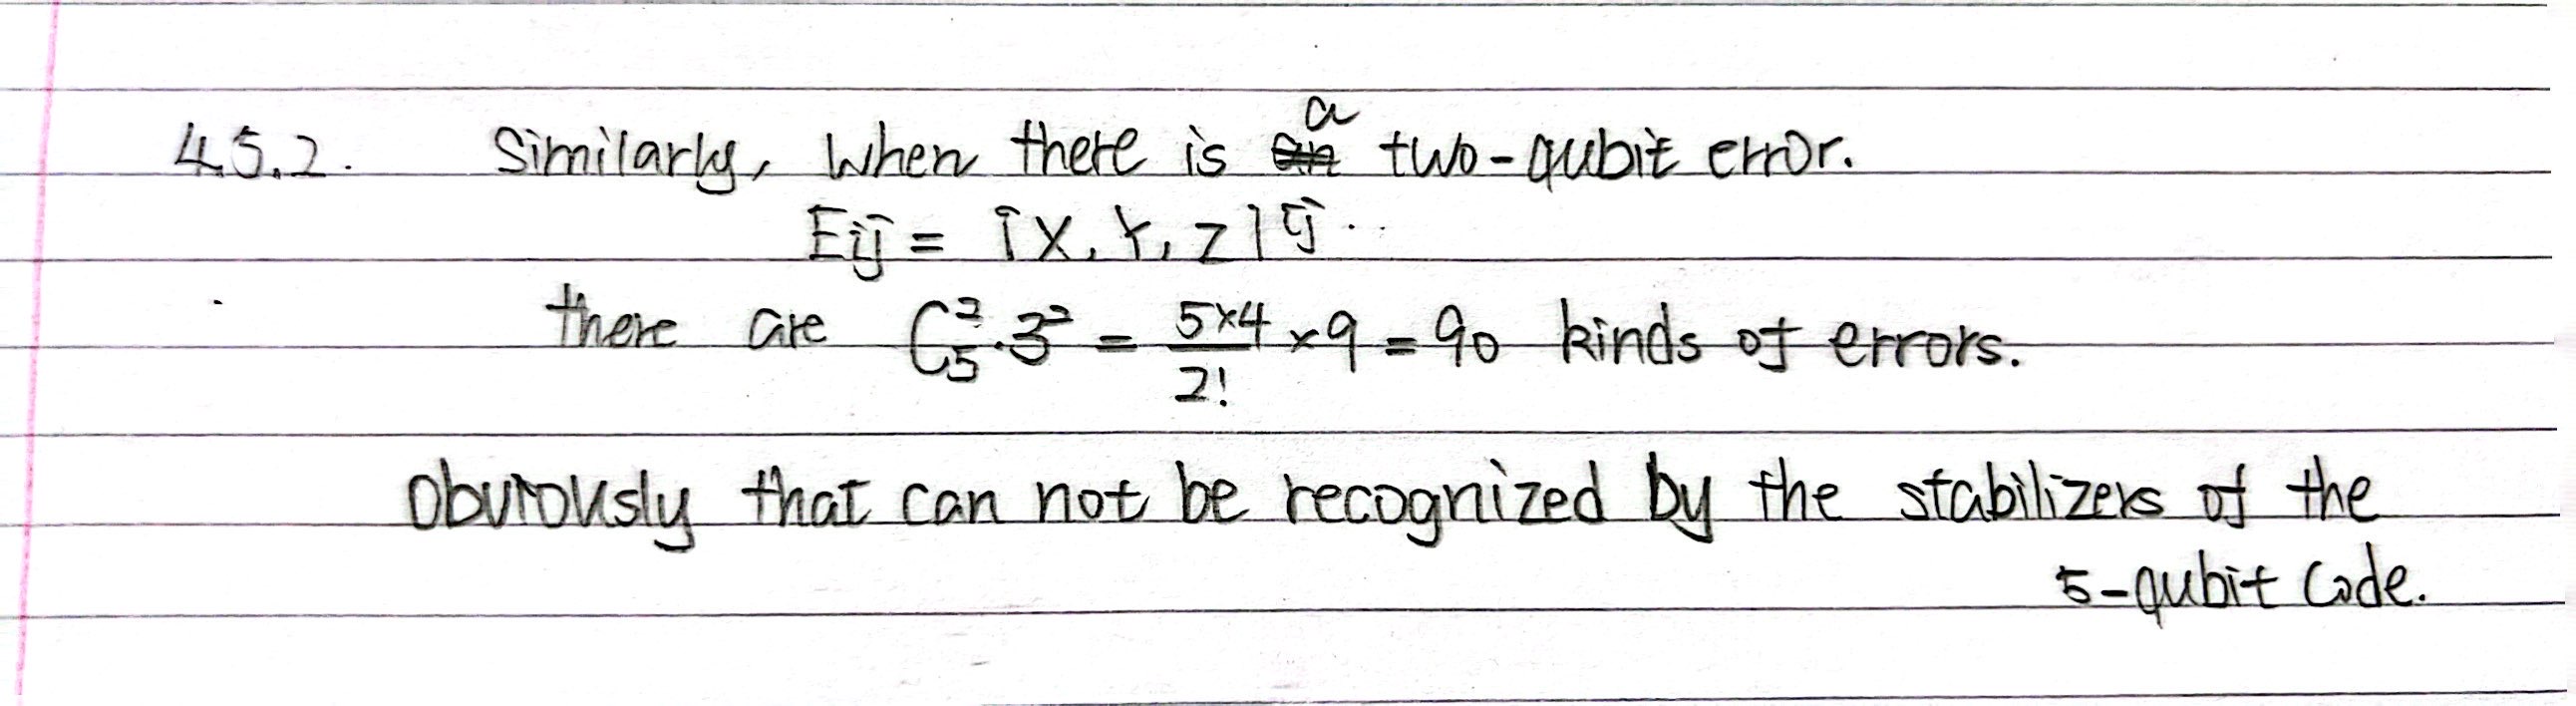 4.5.2. Similarly, when there is a two-qubit error.
Eij = {X, Y, Z}ij.
there are C₅²·3² = 5×4/2! ×9 = 90 kinds of errors.
Obviously that can not be recognized by the stabilizers of the
5-qubit code.